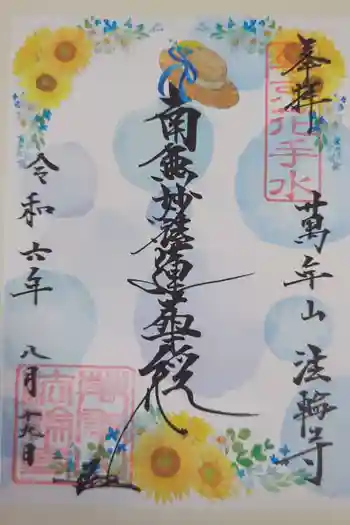 奉拝
花手水
萬年山 法輪寺
南無妙法蓮華経
令和六年
八月十九日